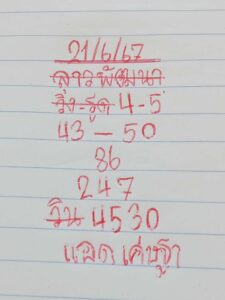 21/6/67
ลาวพัฒนา
วิ่ง-รูด 4-5
43 - 50
86
247
วิน 4530
แอดเศษฐา